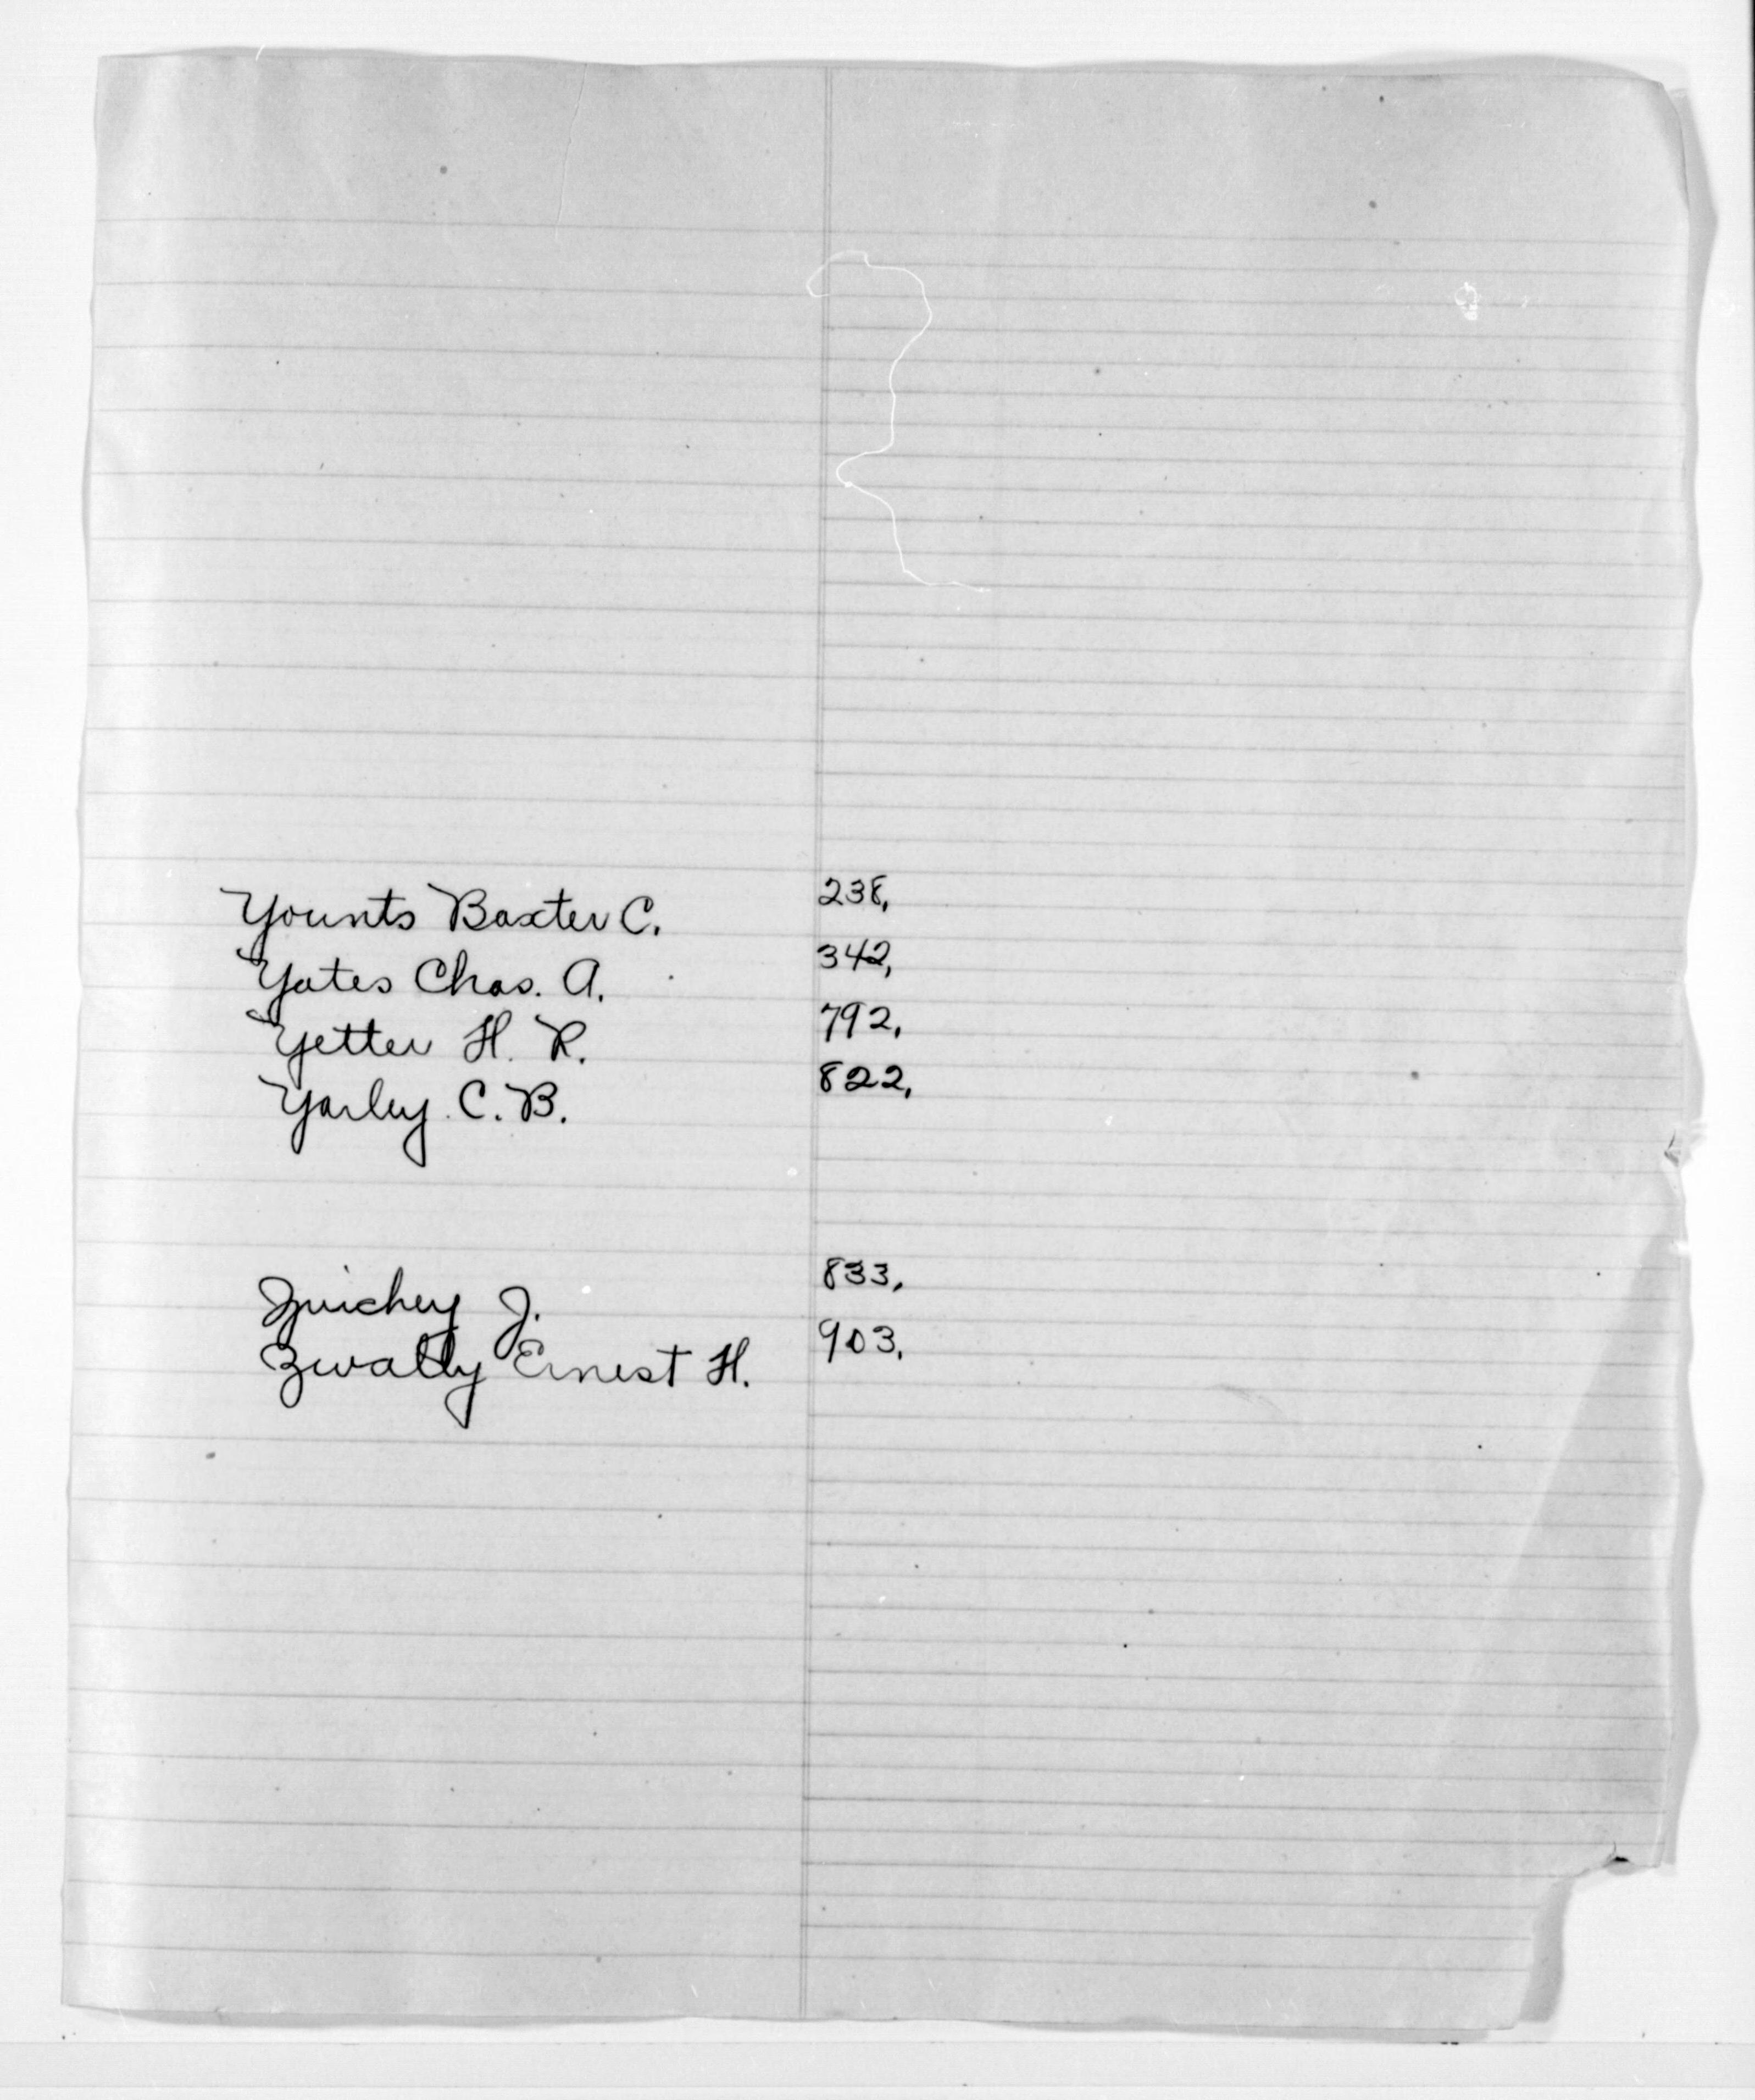 Younts Baxter C. 238,
Yates Chas. A. 342,
Yetter H. R. 792,
Yarley C. B. 822,
J. 833,
Zwally Ernest H. 903,